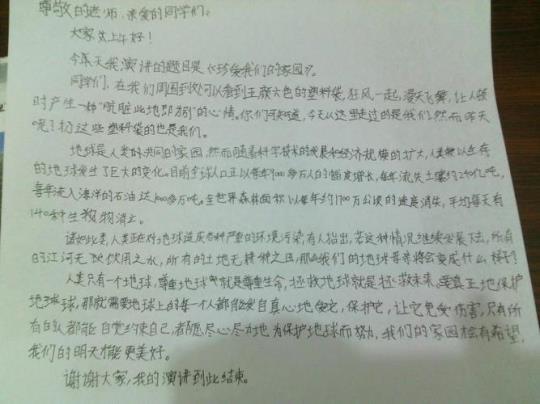 尊敬的老师、亲爱的同学们:
大家上午好!
今天我演讲的题目是《珍爱我们的家园》。
同学们,在我们周围到处可以看到五颜六色的塑料袋,狂风一起,漫天飞舞,让人顿
时产生一种"肮脏此地即为"的心情。你们可知道,今天从这里走过的是我们,然而昨天
呢?扔这些塑料袋的也是我们。
地球是人类的共同的家园,然而随着科学技术的发展和经济规模的扩大,人类赖以生存
的地球发生了巨大的变化。目前全球人口正以每年900多万人的幅度增长,每年流失土壤约240亿吨,
每年流入海洋的石油达1000多万吨。全世界森林面积以每年约1700万公顷的速度消失,平均每天有
140种生物消亡。
诸如此类,人类正在对地球造成各种严重的环境污染,有人指出,若这种情况继续发展下去,所有
的江河无可饮用之水,所有的土地无耕种之田,那么我们的地球等者将会变成什么样子?
人类只有一个地球,尊重地球就是尊重生命,拯救地球就是拯救未来,要真正地保护
地球,那就需要地球上的每一个人都能发自真心地爱它,保护它,让它免受伤害,只有所
有的人都能自觉约束自己,都愿尽心尽力地为保护地球而努力,我们的家园才会有希望,
我们的明天才能更美好。
谢谢大家,我的演讲到此结束。